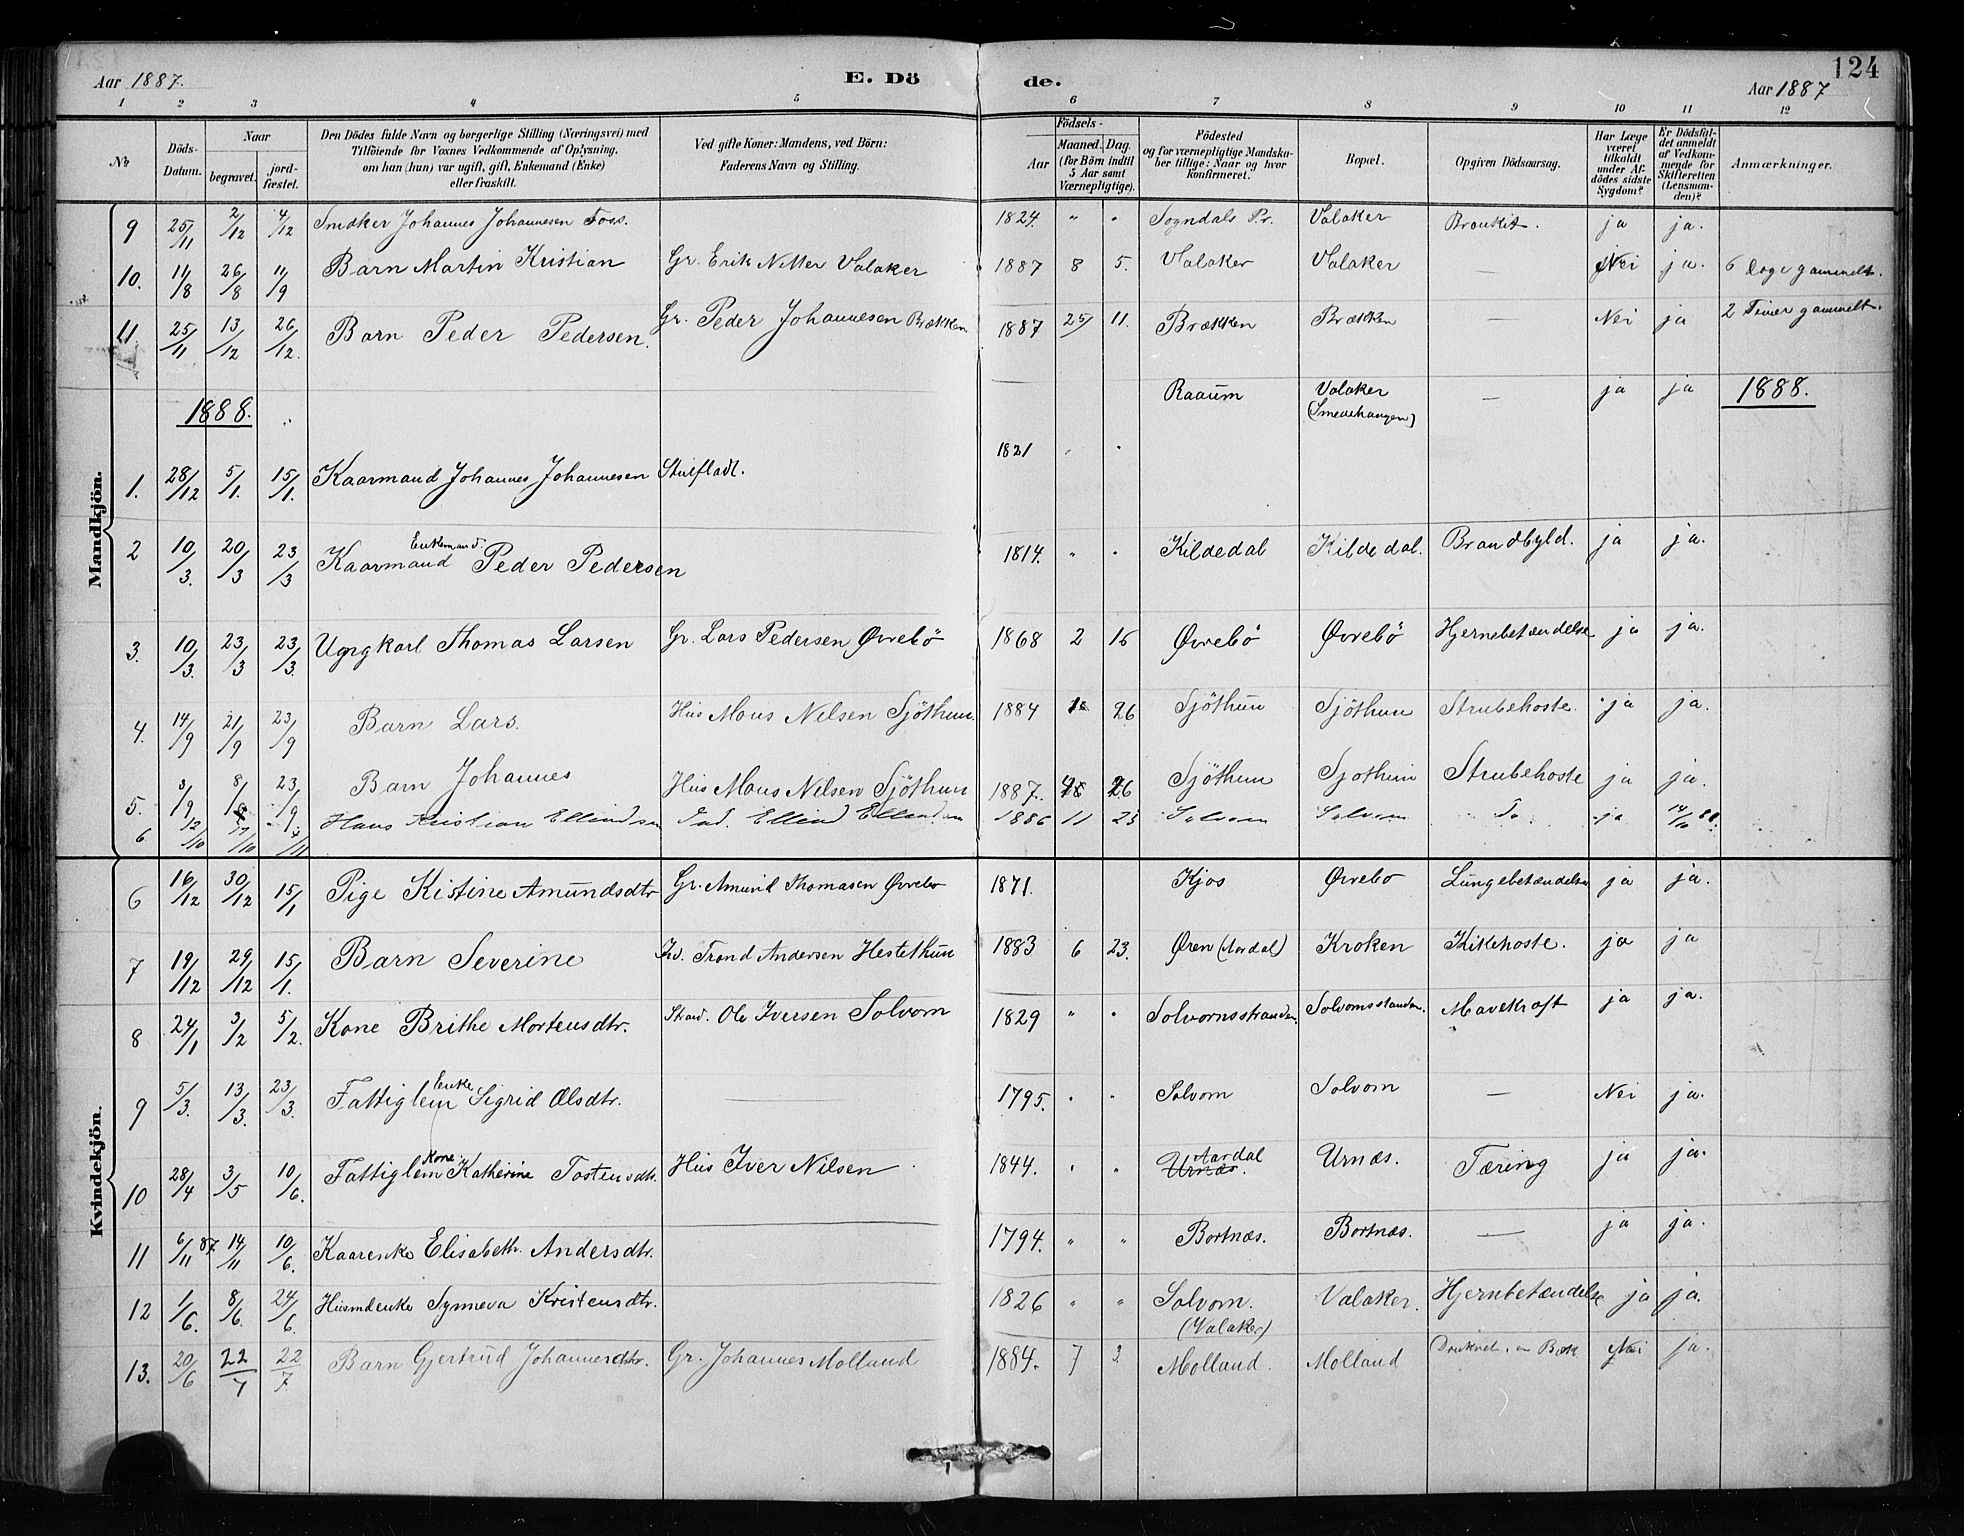 Aar 1887. E. Dö de. Aar 1887 124
1 2 3 4 5 6 7 8 9 10 11 12
No
Döds-Datum.
Naar begravet. jordfæstet.
Den Dödes fulde Navn og borgerlige Stilling (Næringsvei) med
Tilföiende for Voxnes Vedkommende af Oplysning,
om han (hun) var ugift, gift, Enkemand (Enke)
eller fraskilt.
Ved gifte Koner: Mandens, ved Börn:
Faderens Navn og Stilling.
Födsels-
Aar Maaned. Dag.
(for Börn indtil 5 Aar samt Værnepligtige).
Födested
og for værnepligtige Mandskaber tillige: Naar og hvor konfirmeret.
Bopæl.
Opgiven Dödsaarsag.
Har Læge været tilkaldt under Afdödes sidste Sygdom?
Er Dödsfaldet anmeldt af Vedkommende for Skifteretten (Lensmanden)?
Anmærkninger.
Mandkjön.
9 25/11 2/12 4/12 Smdker Johannes Johannesen Foss. 1824. " " Sogndals Pr. Valaker Bronkit. ja ja.
10. 11/8 26/8 11/9 Barn Martin Kristian Gr. Erik Nitter Valaker 1887 8 5. Valaker Valaker — Nei ja. 6 Dage gammelt.
11. 25/11 13/12 26/12. Barn Peder Pedersen. Gr. Peder Johannesen Brækken 1887 25/ 11. Brækken Brækken — Nei ja 2 Timer gammelt.
1888. Raaum Valaker — ja ja 1888.
1. 28/12 5/1. 15/1. Kaarmand Johannes Johannesen 1821
2 10/3. 20/3 23/3 Kaarmand Enkemand. Peder Pedersen 1814. " " Kildedal Kildedal. Brandbyld. ja ja.
3. 10/3. 23/3 23/3. Ungkarl Thomas Larsen Gr. Lars Pedersen Øvrebö 1868 2 15 Øvrebö Øvrebö Hjernebetændelse ja ja.
4. 14/9 21/9 23/9 Barn Lars. Hus Mons Nilsen Sjöthun. 1884 26 Sjöthun Sjöthun Strubehoste. ja ja.
5. 3/9 23/9 Barn Johannes Hus Mons Nilsen Sjöthun 1887. 26 Sjöthun Sjothun Strubehoste ja ja.
6 12/10 Hans Kristian Ellendsen Ellend Ellendsen 1886 11 23 Solvorn Solvorn Do ja 14/10 88.
Kvindekjön.
6 16/12 30/12 15/1 Pige Kistine Amundsdtr Gr. Amund Thomasen Øvrebo 1871. Kjos Øvrebo Lungebetændelse ja ja.
7 19/12 29/12 15/1. Barn Severine Trond Andersen Hestethun 1883 6 23. Øren (Aardal) Kroken Kikehoste. ja ja
8 24/1 3/2 5/2. Kone Brithe Mortensdtr. Strand. Ole Iversen Solvorn 1829 " " Solvornsstranden. Solvornsstanden. Mavekræft ja ja.
9 5/3. 13/3. 23/3. Fattiglem Enke Sigrid Olsdtr. — 1795. " " Solvorn Solvorn — Nei ja.
10 28/4 3/5 10/6. Fattiglem Kone Katherine Tostensdtr. Hus Iver Nilsen 1844. " " Aardal Urnæs. Urnæs. Tæring ja ja.
11 6/11 87. 14/11 10/6. Kaarenke Elisabeth Andersdtr. 1794. " " Bortnæs. Bortnæs. — ja ja.
12 1/6. 8/6. 24/6 Husmdenke Synneva Kristensdtr. 1826 " " Solvorn. (Valaker) Valaker. Hjernbetændelse ja ja.
13. 20/6 22/7 22/7. Barn Gjertrud Johannesdtr. Gr. Johannes Molland 1884. 7 3. Molland. Molland Druknet i en Bæk Nei ja.